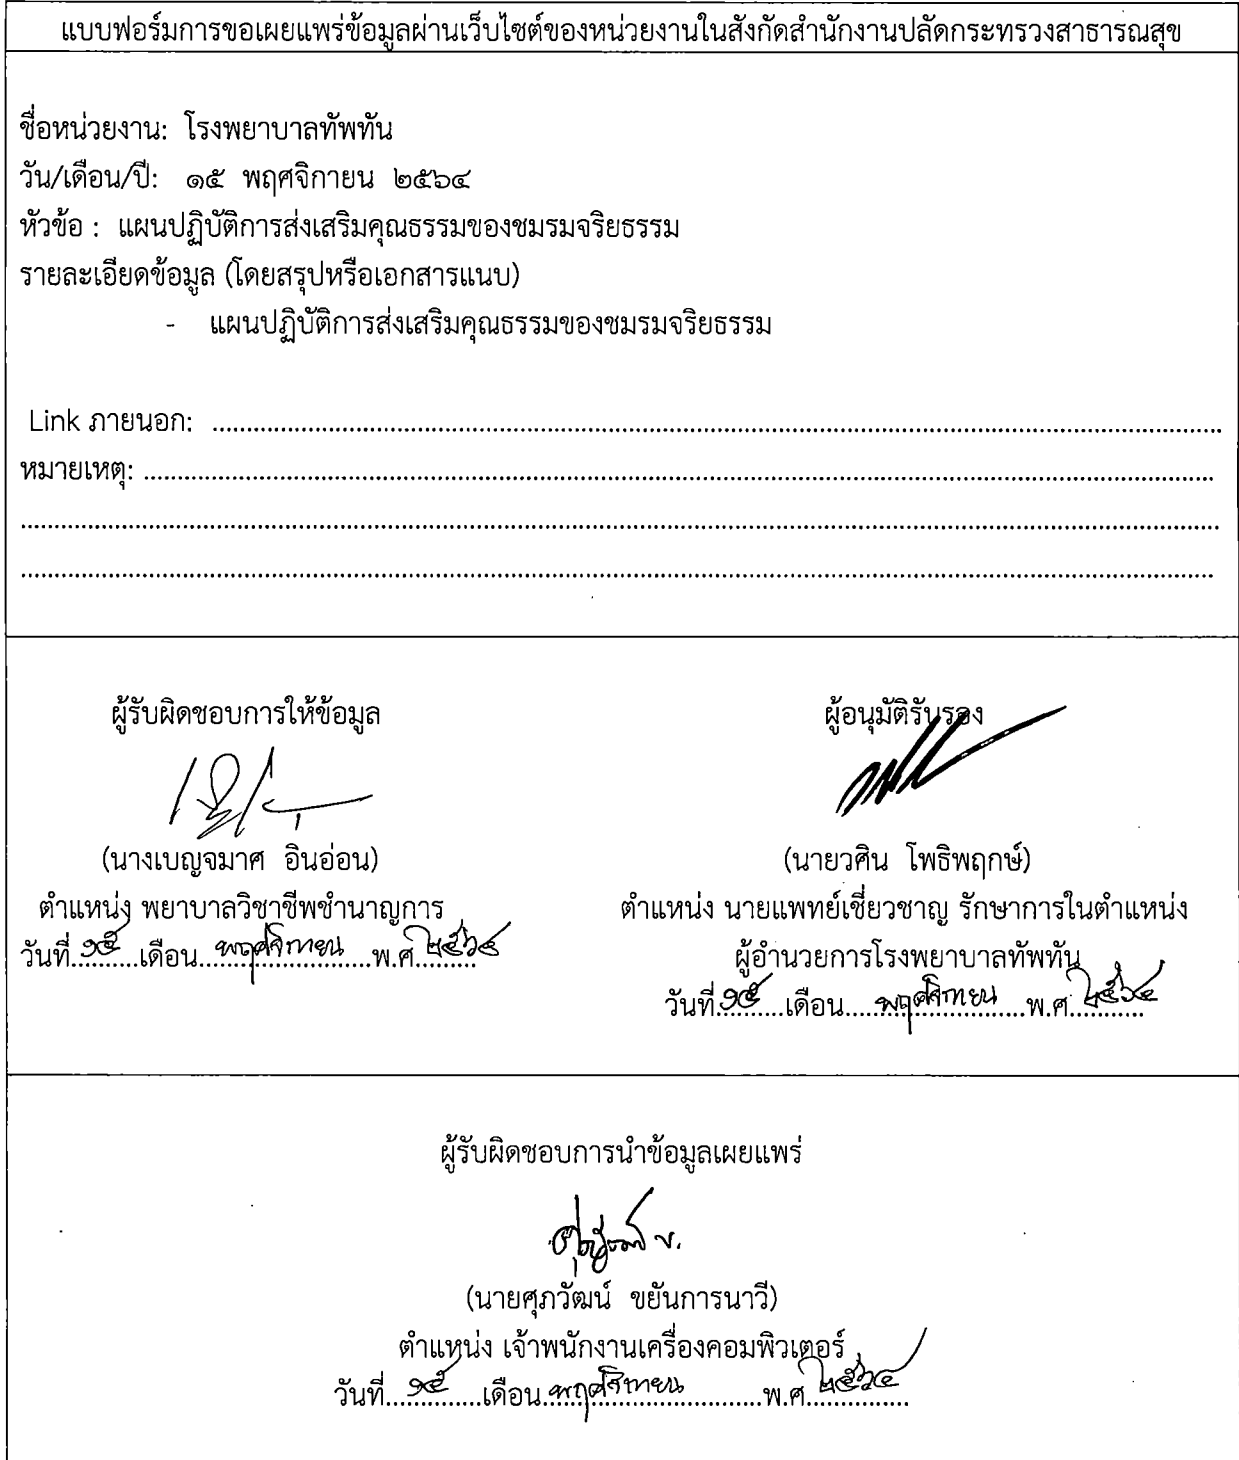 แบบฟอร์มการขอเผยแพร่ข้อมูลผ่านเว็บไซต์ของหน่วยงานในสังกัดสำนักงานปลัดกระทรวงสาธารณสุข
ชื่อหน่วยงาน: โรงพยาบาลทัพทัน
วัน/เดือน/ปี: ๑๕ พฤศจิกายน ๒๕๖๔
หัวข้อ : แผนปฏิบัติการส่งเสริมคุณธรรมของชมรมจริยธรรม
รายละเอียดข้อมูล (โดยสรุปหรือเอกสารแนบ)
- แผนปฏิบัติการส่งเสริมคุณธรรมของชมรมจริยธรรม
Link ภายนอก: ........................................
หมายเหตุ: ........................................
........................................
........................................
ผู้รับผิดชอบการให้ข้อมูล
(นางเบญจมาศ อินอ่อน)
ตำแหน่ง พยาบาลวิชาชีพชำนาญการ
วันที่ ๑๕ เดือน พฤศจิกายน พ.ศ. ๒๕๖๔
ผู้อนุมัติรับรอง
(นายวศิน โพธิพฤกษ์)
ตำแหน่ง นายแพทย์เชี่ยวชาญ รักษาการในตำแหน่ง
ผู้อำนวยการโรงพยาบาลทัพทัน
วันที่ ๑๕ เดือน พฤศจิกายน พ.ศ. ๒๕๖๔
ผู้รับผิดชอบการนำข้อมูลเผยแพร่
(นายศุภวัฒน์ ขยันการนาวี)
ตำแหน่ง เจ้าพนักงานเครื่องคอมพิวเตอร์
วันที่ ๑๕ เดือน พฤศจิกายน พ.ศ. ๒๕๖๔